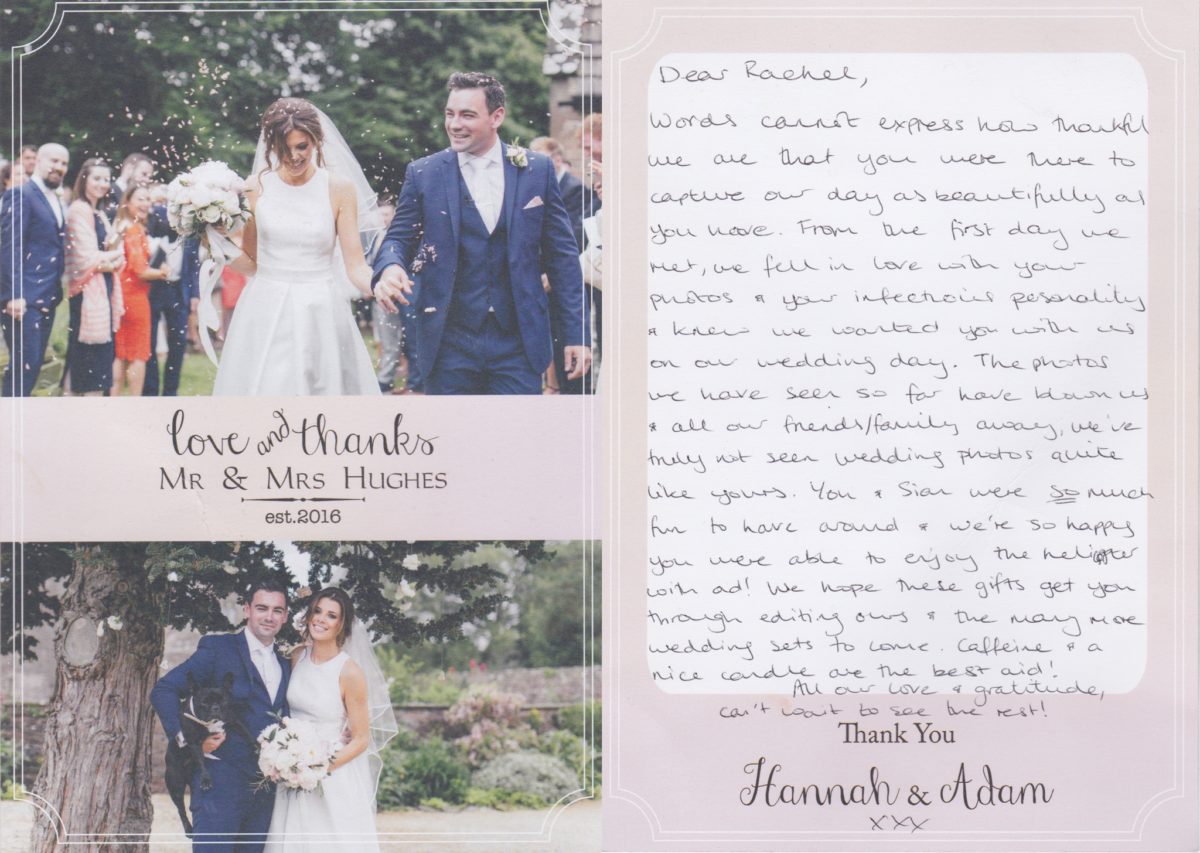 love and thanks
MR & MRS HUGHES
est.2016
Dear Rachel,
Words cannot express how thankful
we are that you were there to
capture our day as beautifully as
you have. From the first day we
met, we fell in love with your
photos & your infectious personality
& knew we wanted you with us
on our wedding day. The photos
we have seen so far have blown us
& all our friends/family away, we've
truly not seen wedding photos quite
like yours. You & Sian were so much
fun to have around & we're so happy
you were able to enjoy the
with ad! We hope these gifts get you
through editing ours & the many more
wedding sets to come. Caffeine & a
nice candle are the best aid!
All our love & gratitude,
can't wait to see the rest!
Thank You
Hannah & Adam
xxx